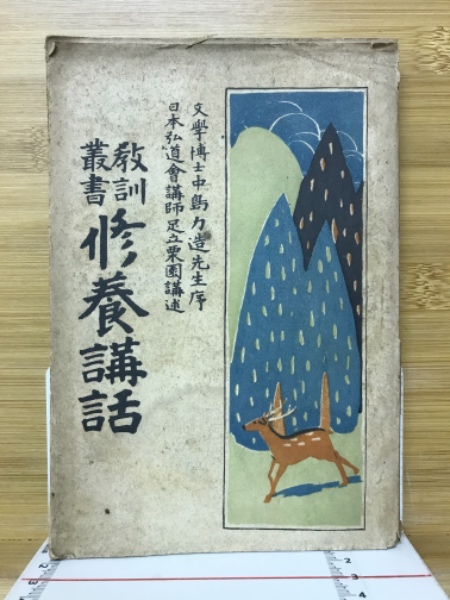 文學博士中島力造先生序
日本弘道會講師足立栗園講述
教訓
叢書
修養講話
2
3
4
3
2